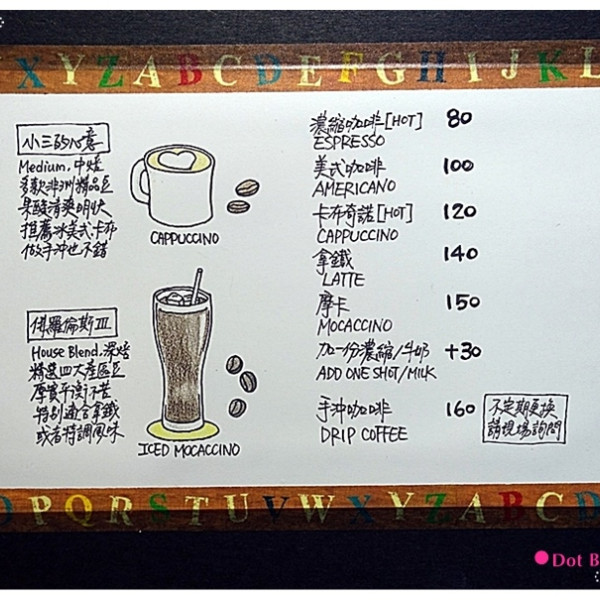 X Y Z A B C D E F G H I J K L
小三的心意
Medium.中焙
多款非洲精品豆
果酸清爽明快
推薦冰美式卡布
做手沖也不錯
CAPPUCCINO
佛羅倫斯III
House Blend.深焙
精選四大產區豆
厚實平衡不苦
特別適合拿鐵
或者特調風味
ICED MOCACCINO
濃縮咖啡[HOT] 80
ESPRESSO
美式咖啡 100
AMERICANO
卡布奇諾[HOT] 120
CAPPUCCINO
拿鐵 140
LATTE
摩卡 150
MOCACCINO
加一份濃縮/牛奶 +30
ADD ONE SHOT/MILK
手沖咖啡 160
DRIP COFFEE
不定期更換
請現場詢問
P Q R S T U V W X Y Z A B C D
Dot B